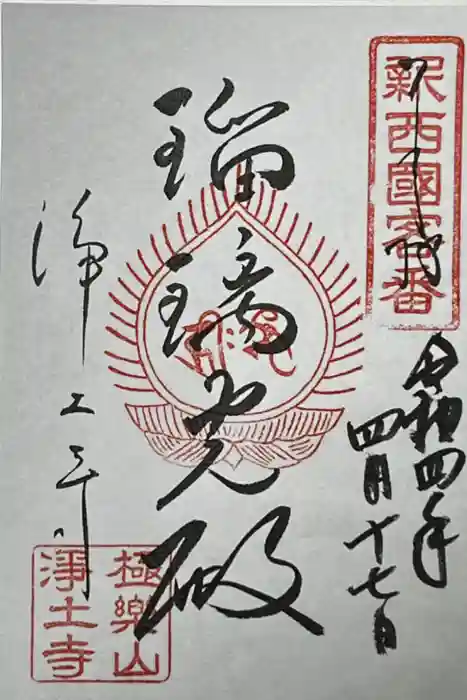 新西國客番
奉拝
令和四年
四月十七日
瑠璃光殿
浄土寺
極樂山
淨土寺